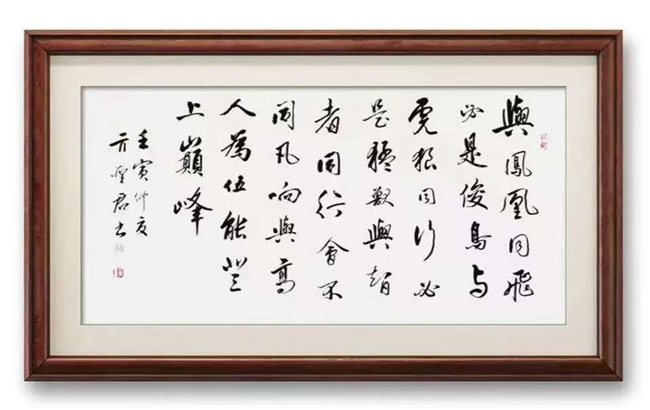 與鳳凰同飛
必是俊鳥与
虎狼同行必
是猛獸與智
者同行會不
同凡响與高
人為伍能登
上巔峰
壬寅仲夏
君书